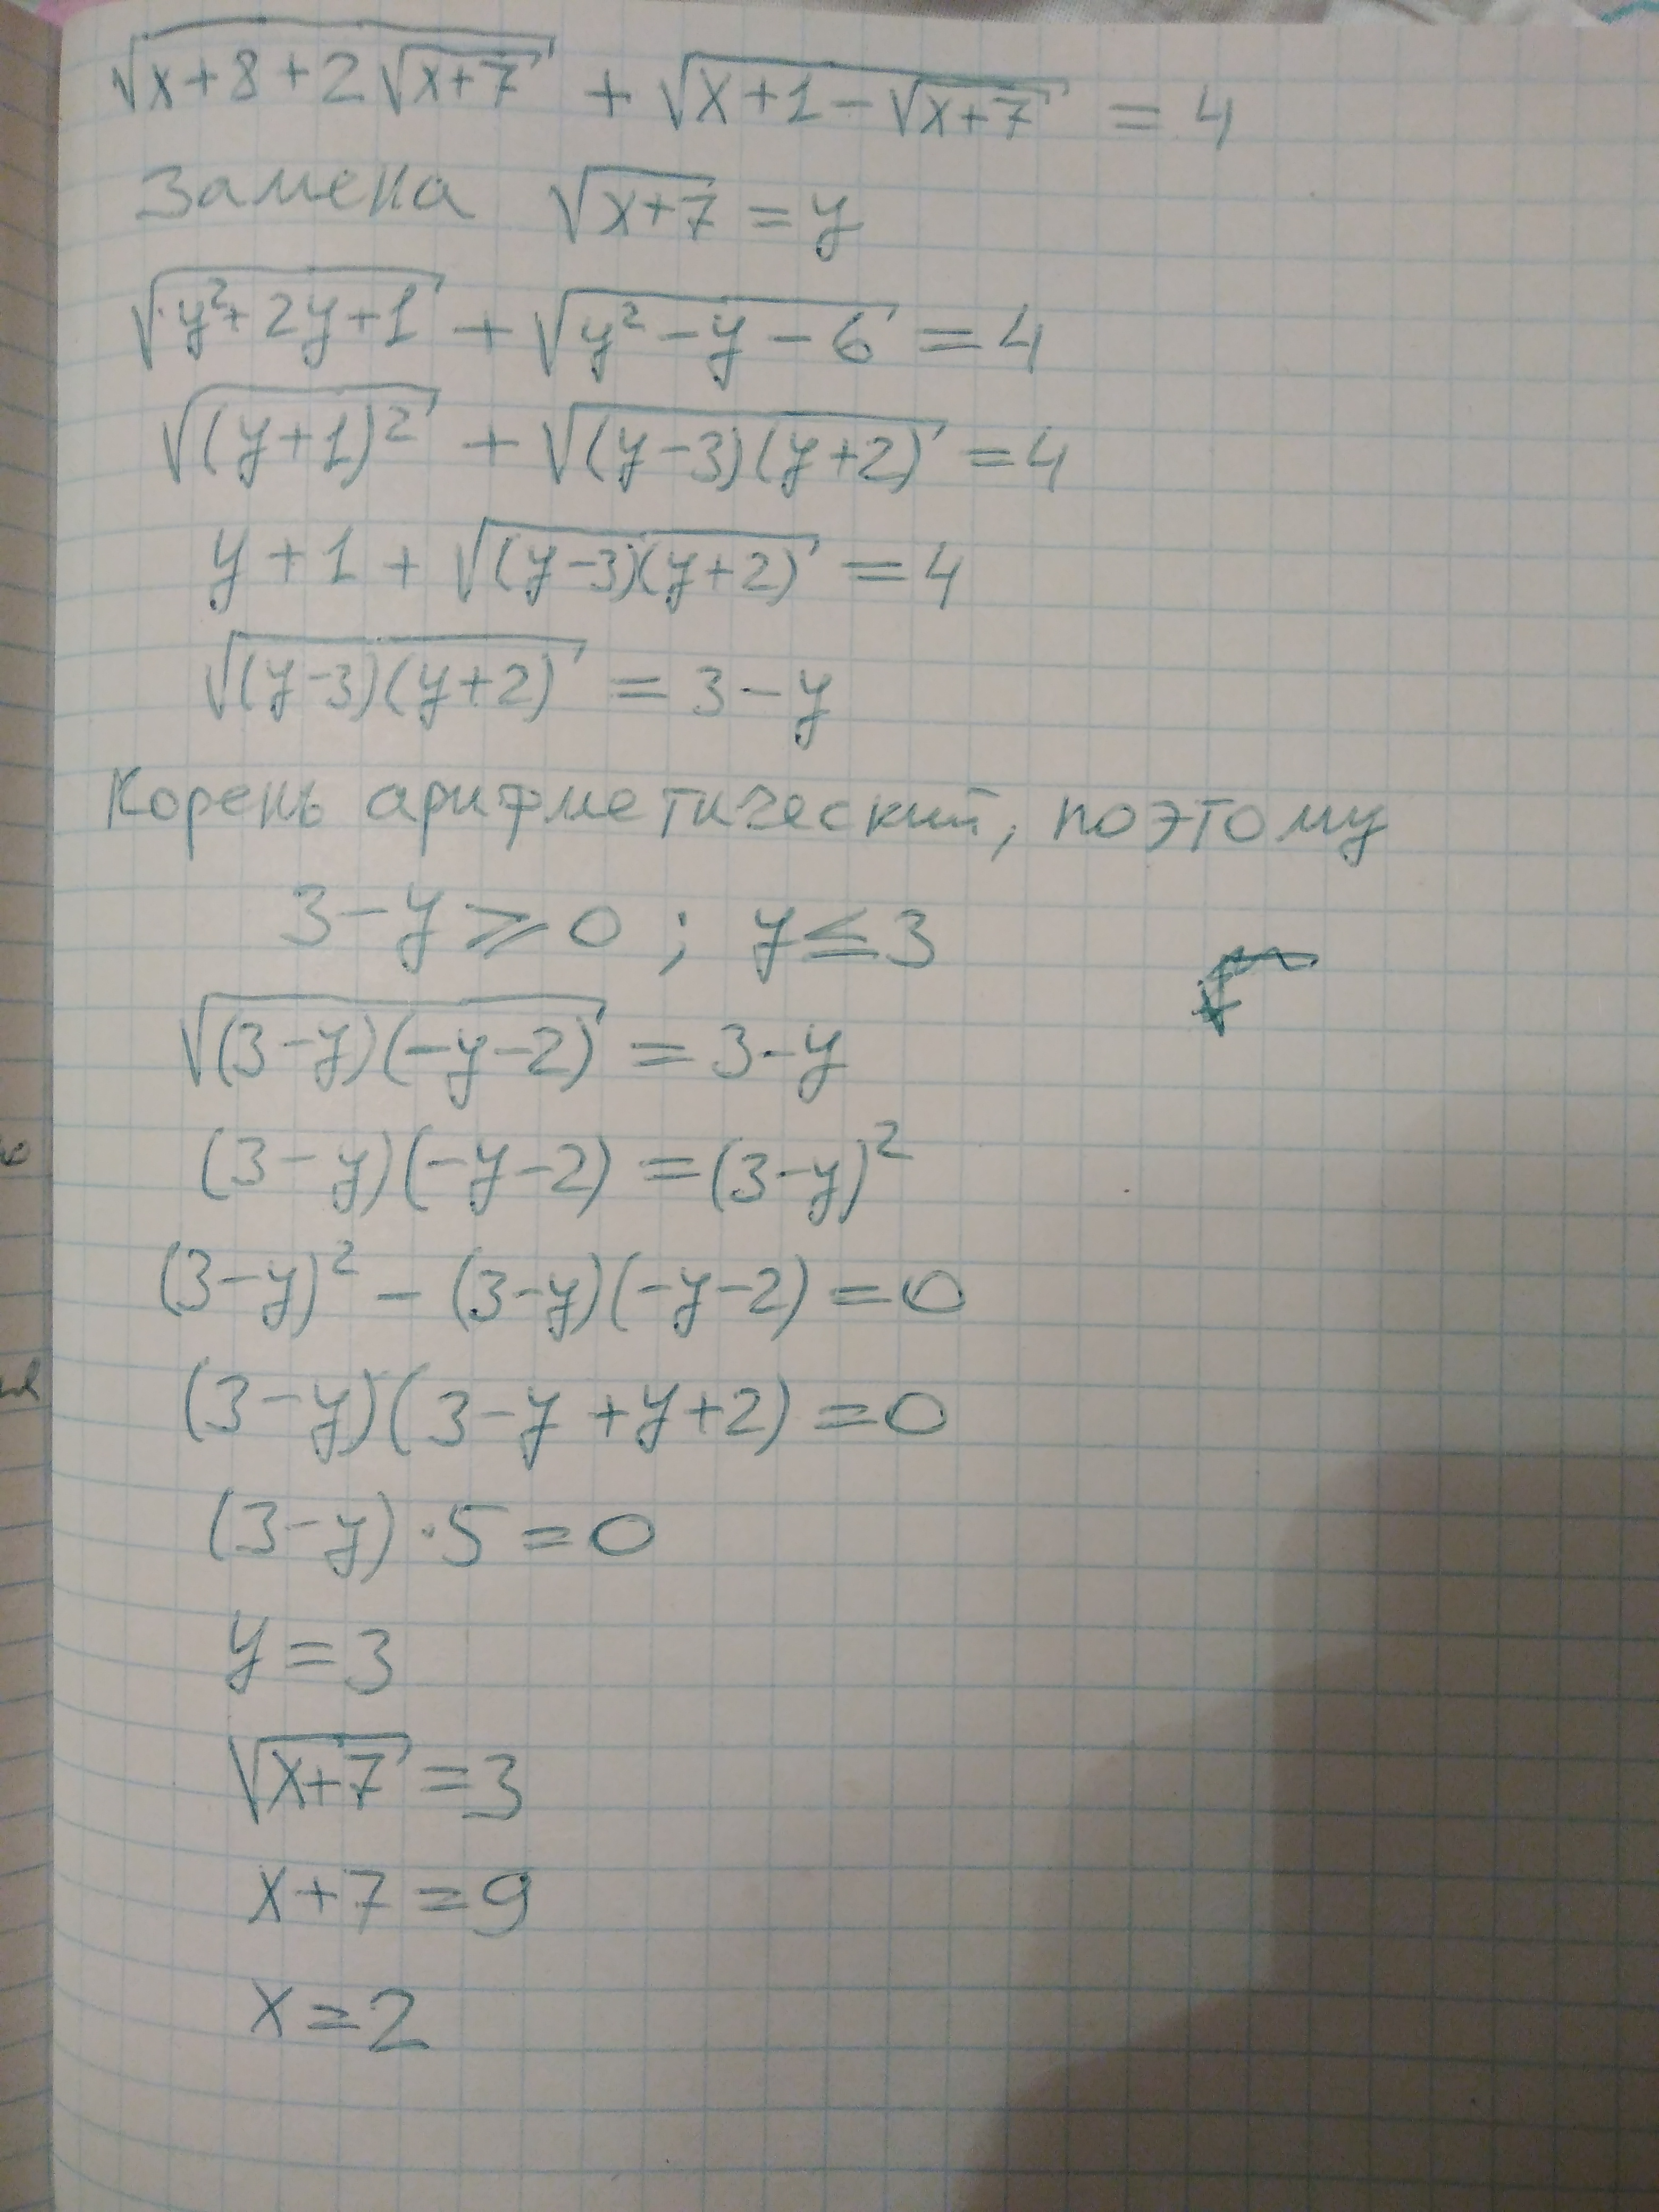 √(x+8+2√(x+7)) + √(x+1-√(x+7)) = 4
Замена √(x+7) = y
√(y²+2y+1) + √(y²-y-6) = 4
√((y+1)²) + √((y-3)(y+2)) = 4
y+1+√((y-3)(y+2)) = 4
√((y-3)(y+2)) = 3-y
Корень арифметический, поэтому
3-y ⩾ 0 ; y ≤ 3
√((3-y)(-y-2)) = 3-y
(3-y)(-y-2) = (3-y)²
(3-y)² - (3-y)(-y-2) = 0
(3-y)(3-y+y+2) = 0
(3-y)·5 = 0
y = 3
√(x+7) = 3
x+7 = 9
x = 2